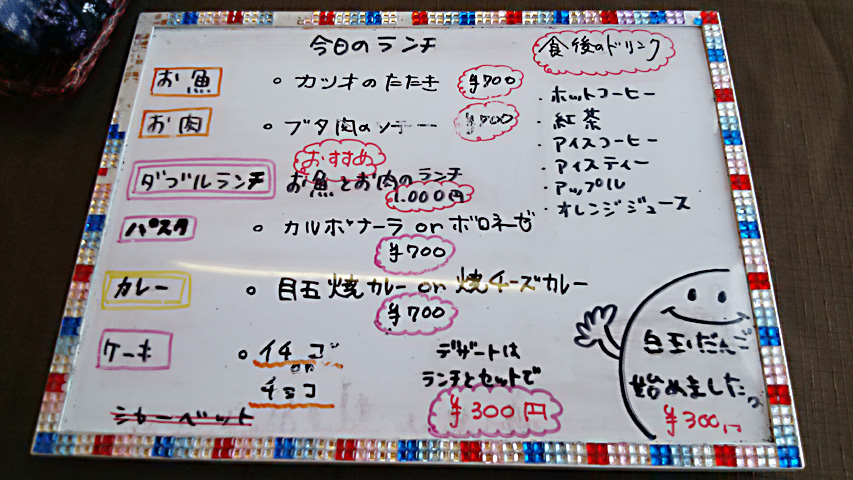 今日のランチ
お魚 ・カツオのたたき ¥700
お肉 ・ブタ肉の ¥700
おすすめ
ダブルランチ お魚とお肉のランチ
1,000円
パスタ ・カルボナーラ or ボロネーゼ
¥700
カレー ・目玉焼カレー or 焼チーズカレー
¥700
ケーキ ・イチゴ
or
チョコ
シャーベット
デザートは
ランチとセットで
¥300円
食後のドリンク
・ホットコーヒー
・紅茶
・アイスコーヒー
・アイスティー
・アップル
・オレンジジュース
白玉だんご
始めました。
¥300円